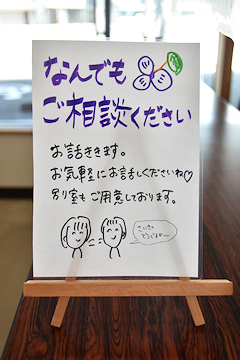 なんでも
ご相談ください
お話ききます。
お気軽にお話しくださいね♡
別室もご用意しております。
さいきん
どうですか〜